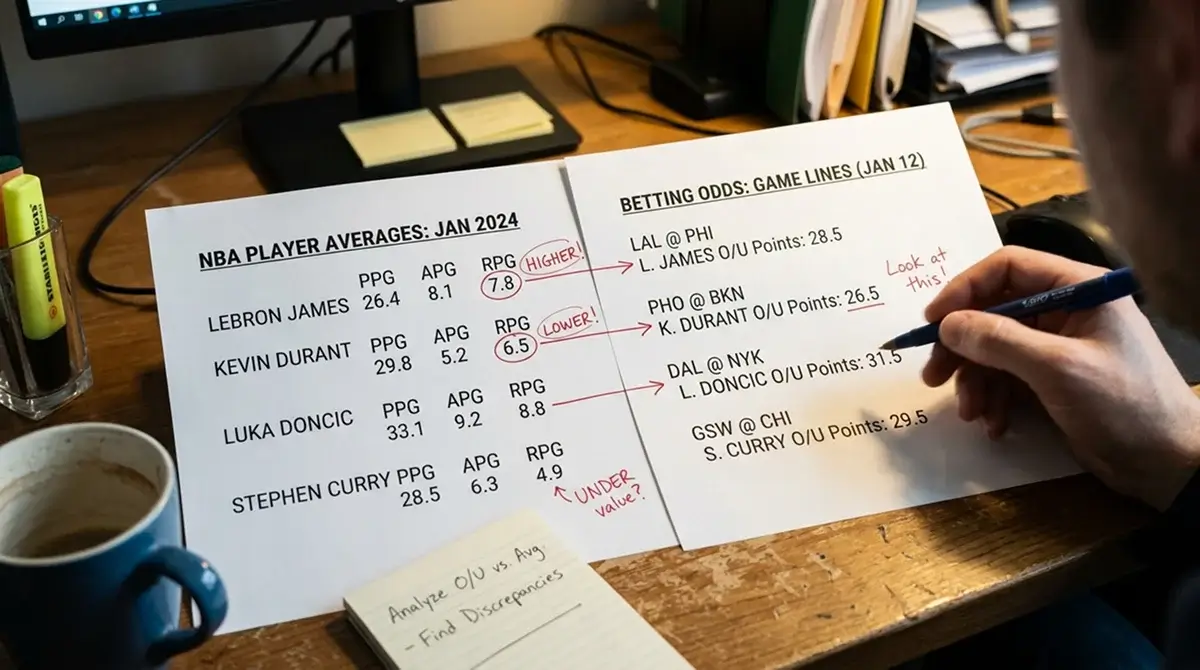 NBA PLAYER AVERAGES: JAN 2024
PPG APG RPG HIGHER!
LEBRON JAMES 26.4 8.1 7.8
PPG APG RPG LOWER!
KEVIN DURANT 29.8 5.2 6.5
PPG APG RPG
LUKA DONCIC 33.1 9.2 8.8
STEPHEN CURRY PPG APG RPG
28.5 6.3 4.9
UNDER
value?
BETTING ODDS: GAME LINES (JAN 12)
LAL @ PHI
L. JAMES O/U Points: 28.5
PHO @ BKN
K. DURANT O/U Points: 26.5
Look at
this!
DAL @ NYK
L. DONCIC O/U Points: 31.5
GSW @ CHI
S. CURRY O/U Points: 29.5
Analyze O/U vs. Avg.
- Find Discrepancies